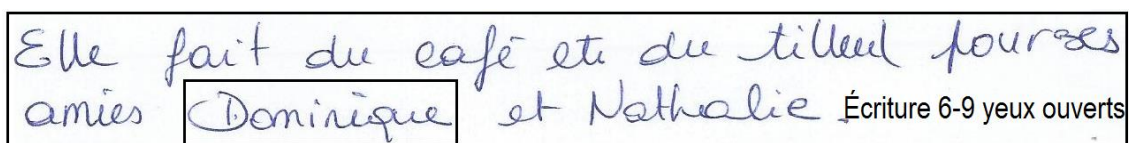 Elle fait du café et du tilleul pour ses
amies Dominique et Nathalie Écriture 6-9 yeux ouverts